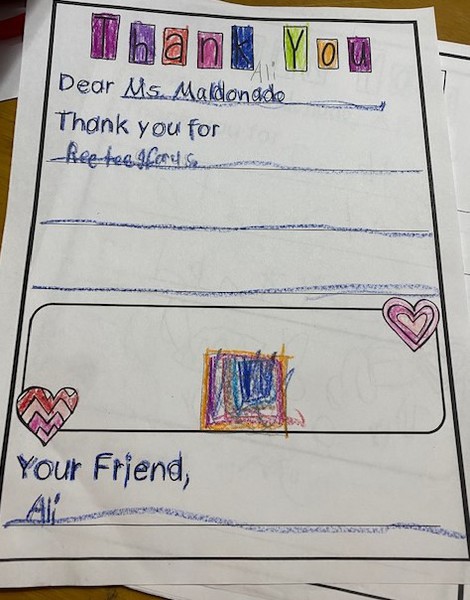 Thank You
Ali
Dear Ms. Maldonado
Thank you for
Your Friend,
Ali